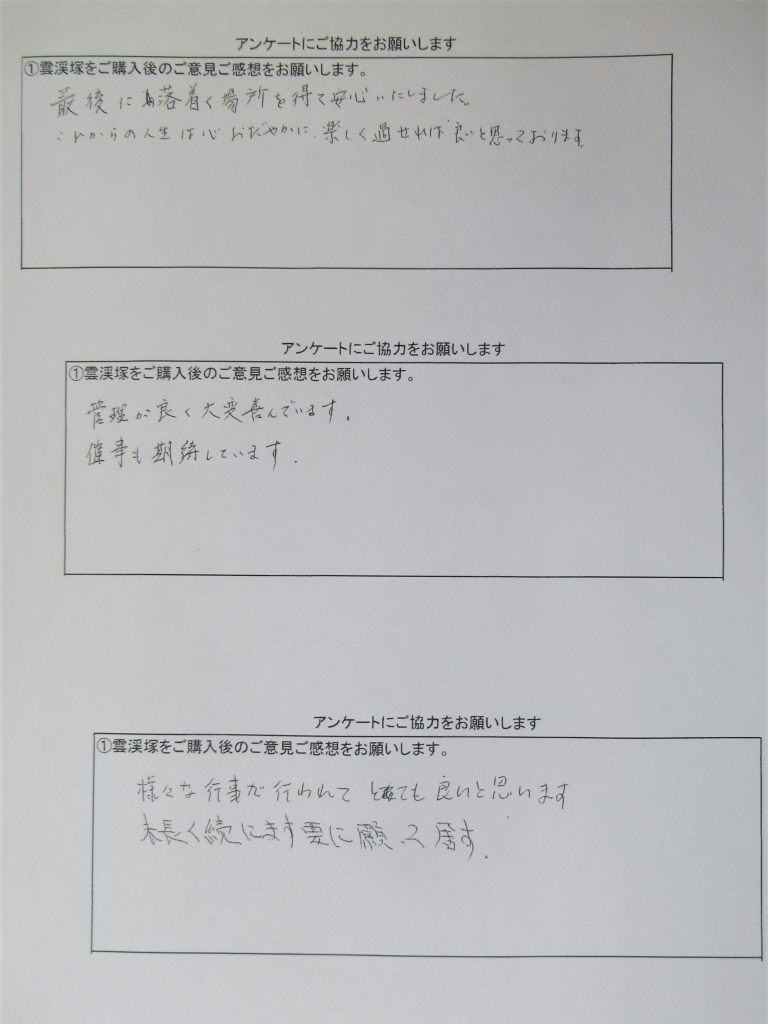 アンケートにご協力をお願いします
①雲渓塚をご購入後のご意見ご感想をお願いします。
最後に落着く場所を得て安心いたしました。
これからの人生は心おだやかに、楽しく過せれば良いと思っております。
アンケートにご協力をお願いします
①雲渓塚をご購入後のご意見ご感想をお願いします。
管理が良く大変喜んでいます。
催事も期待しています。
アンケートにご協力をお願いします
①雲渓塚をご購入後のご意見ご感想をお願いします。
様々な行事が行われて とても良いと思います
末長く続きます様に願って居す。